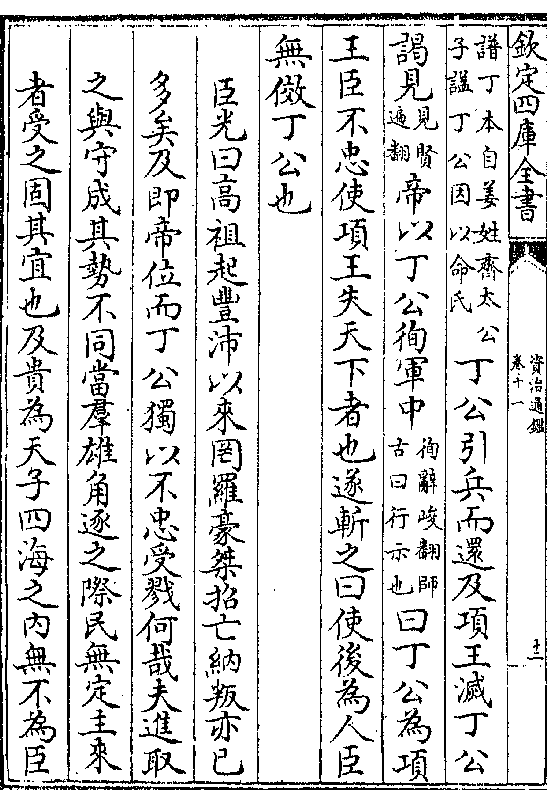 欽定四庫全書
資治通鑑
卷十一
十二
譜丁本自姜姓齊太公
子諡丁公因以命氏
丁公引兵而還及項王滅丁公
謁見
見賢
遍翻
帝以丁公徇軍中
徇辭峻翻師
古曰行示也
曰丁公為項
王臣不忠使項王失天下者也遂斬之曰使後為人臣
無傚丁公也
臣光曰高祖起豐沛以來罔羅豪桀招亡納叛亦已
多矣及即帝位而丁公獨以不忠受戮何哉夫進取
之與守成其勢不同當羣雄角逐之際民無定主來
者受之固其宜也及貴為天子四海之内無不為臣